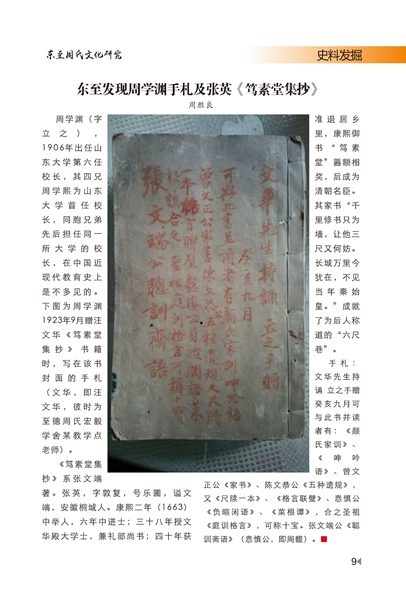 东至周氏文化研究
史料发掘
东至发现周学渊手札及张英《笃素堂集抄》
周胜良
周学渊（字
立之），
1906年出任山
东大学第六任
校长，其四兄
周学熙为山东
大学首任校
长，同胞兄弟
先后担任同一
所大学的校
长，在中国近
现代教育史上
是不多见的。
下图为周学渊
1923年9月赠汪
文华《笃素堂
集抄》书籍
时，写在该书
封面的手札
（文华，即汪
文华，彼时为
至德周氏宏毅
学舍某教学点
老师）。
《笃素堂集
抄》系张文端
著。张英，字敦复，号乐圃，谥文
端，安徽桐城人。康熙二年（1663）
中举人，六年中进士；三十八年授文
华殿大学士，兼礼部尚书；四十年获
文华先生持诵 立之手赠
癸亥九月
张文端公聪训斋语
准退居乡
里，康熙御
书“笃素
堂”匾额相
奖，后成为
清朝名臣。
其家书“千
里修书只为
墙，让他三
尺又何妨。
长城万里今
犹在，不见
当年秦始
皇。”成就
了为后人称
道的“六尺
巷”。
手札：
文华先生持
诵 立之手赠
癸亥九月可
与此书并读
者有：《颜
氏家训》、
《呻吟
语》、曾文
正公《家书》、陈文恭公《五种遗规》，
又《尺牍一本》、《格言联璧》、悫慎公
《负暄闲语》、《菜根谭》，合之圣祖
《庭训格言》，可称十宝。张文端公《聪
训斋语》（悫慎公，即周馥）。
9